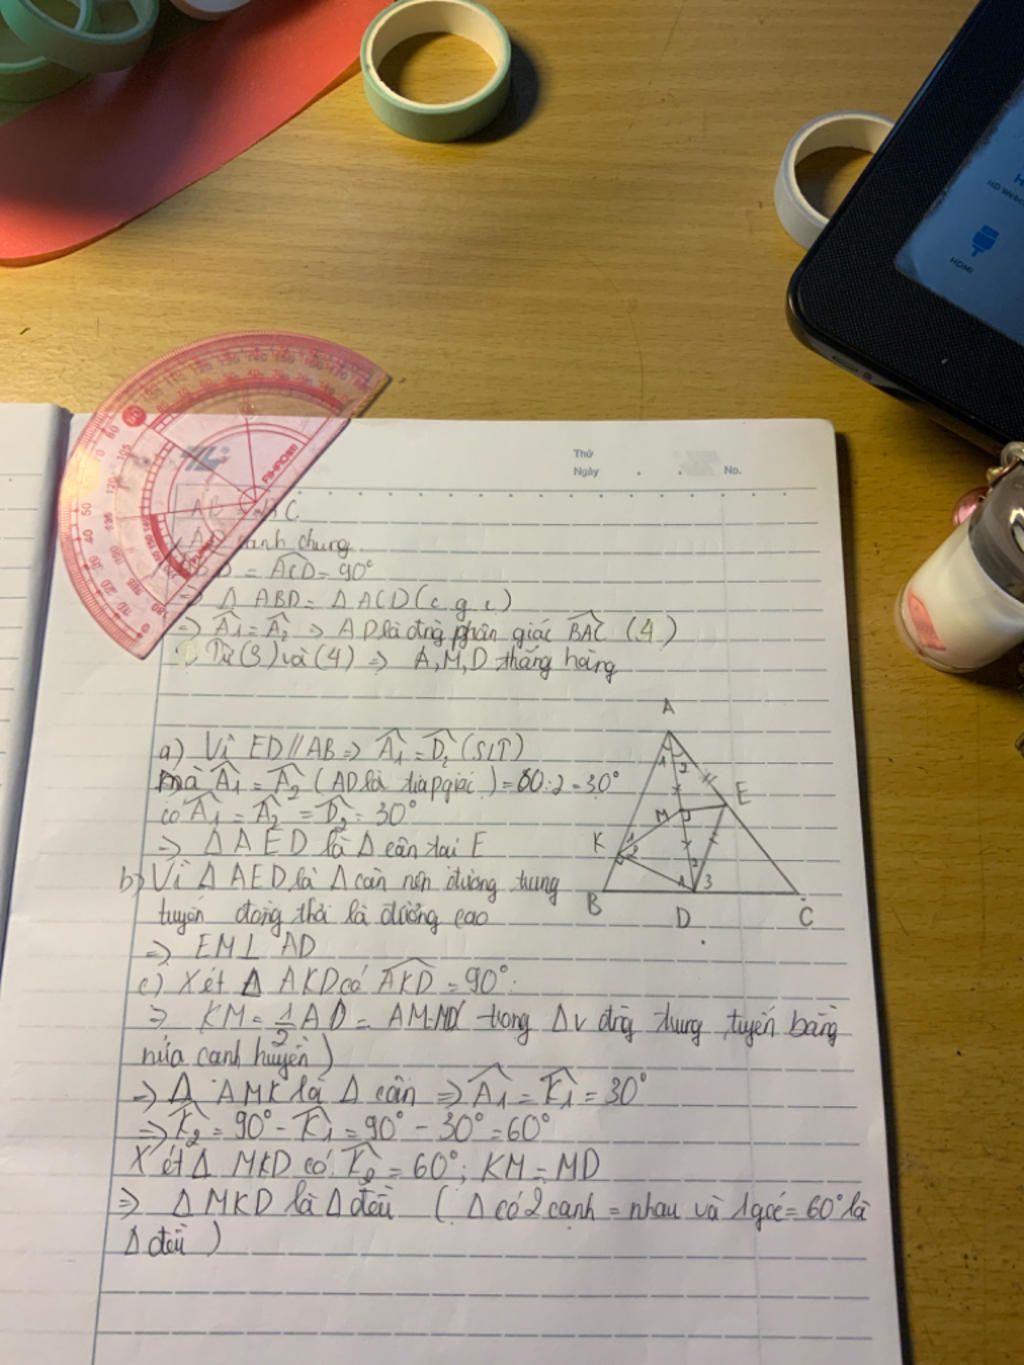 Thứ
Ngày . . No.
C
cạnh chung
= ACD = 90°
=> Δ ABD = Δ ACD (c.g.c)
=> A1 = A2 => AD là đng phân giác BAC (4)
Từ (3) và (4) => A, M, D thẳng hàng
a) Vì ED // AB => A1 = D2 (SLT)
mà A1 = A2 (AD là tia p giác) = 60 : 2 = 30°
có A1 = A2 = D2 = 30°
=> Δ AED là Δ cân tại E
b) Vì Δ AED là Δ cân nên đường trung
tuyến đồng thời là đường cao
=> EM ⊥ AD
c) Xét Δ AKD có AKD = 90°
=> KM = 1/2 AD = AM = MD ( trong Δv đng trung tuyến bằng
nửa cạnh huyền )
=> Δ AMK là Δ cân => A1 = K1 = 30°
=> K2 = 90° - K1 = 90° - 30° = 60°
Xét Δ MKD có: K2 = 60° ; KM = MD
=> Δ MKD là Δ đều ( Δ có 2 cạnh = nhau và 1 góc = 60° là
Δ đều )
A
1 2
E
M
K 1
2
2
1 3
B D C
HDMI